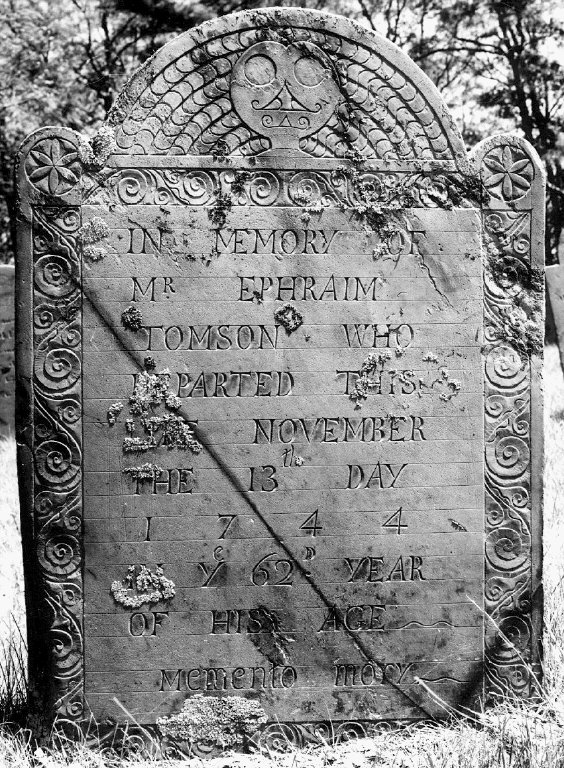 IN MEMORY OF
Mʀ EPHRAIM
TOMSON WHO
DEPARTED THIS
LIFE NOVEMBER
THE 13th DAY
1 7 4 4
Yᵉ 62ᴰ YEAR
OF HIS AGE
Memento mory